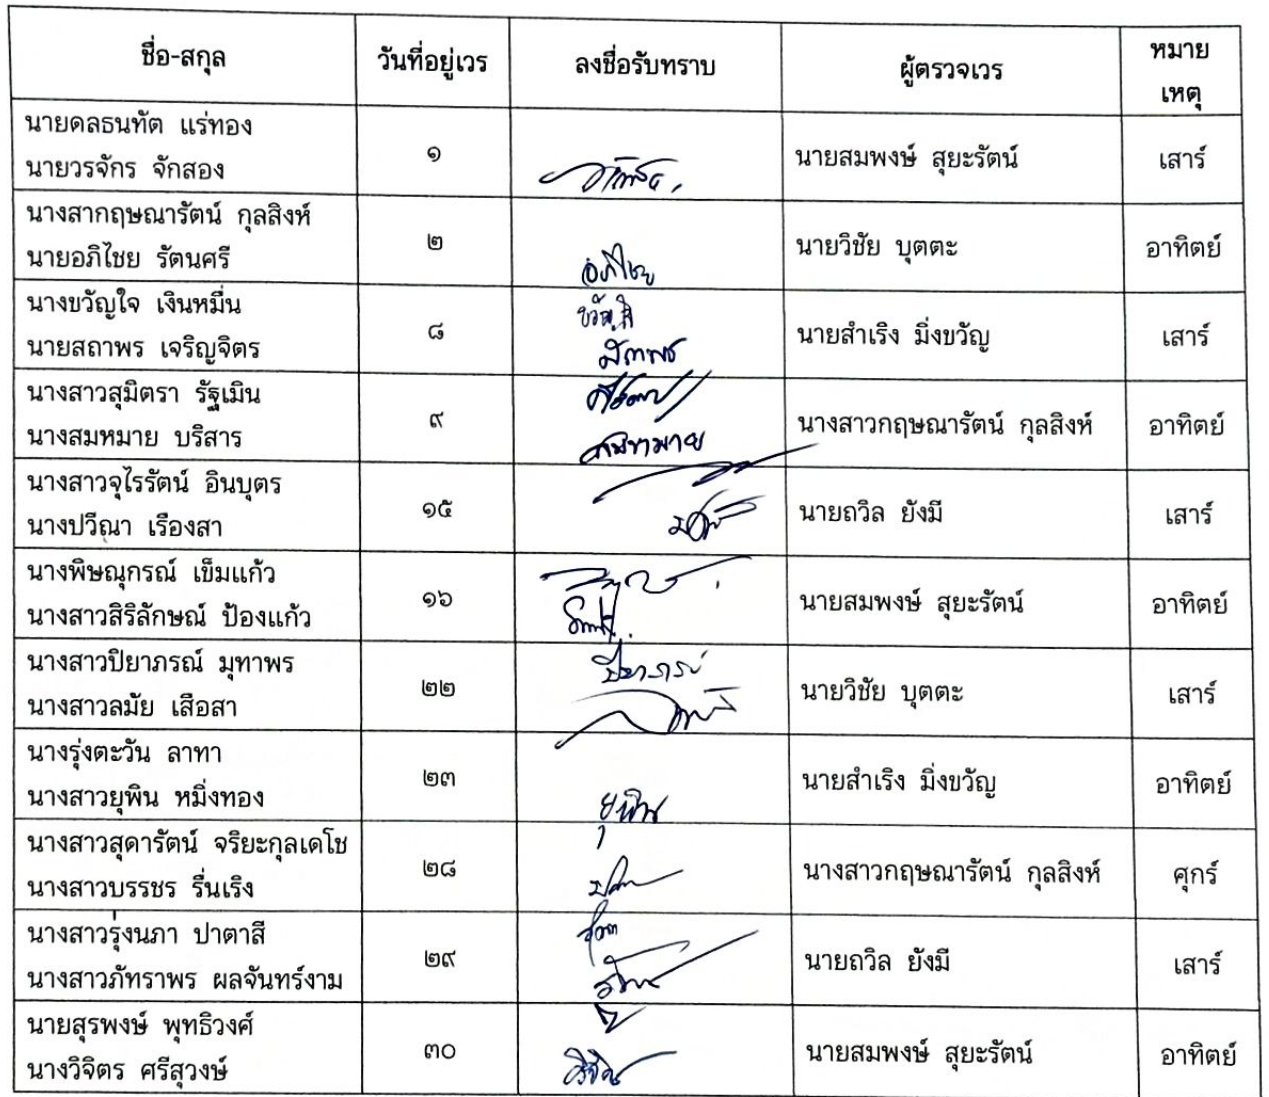 ชื่อ-สกุล วันที่อยู่เวร ลงชื่อรับทราบ ผู้ตรวจเวร หมาย
เหตุ
นายดลธนทัต แร่ทอง
นายวรจักร จักสอง
๑ นายสมพงษ์ สุยะรัตน์ เสาร์
นางสากฤษณารัตน์ กุลสิงห์
นายอภิไชย รัตนศรี
๒ อภิไชย นายวิชัย บุตตะ อาทิตย์
นางขวัญใจ เงินหมื่น
นายสถาพร เจริญจิตร
๘ ขวัญใจ
สถาพร
นายสำเริง มิ่งขวัญ เสาร์
นางสาวสุมิตรา รัฐเมิน
นางสมหมาย บริสาร
๙ สมหมาย นางสาวกฤษณารัตน์ กุลสิงห์ อาทิตย์
นางสาวจุไรรัตน์ อินบุตร
นางปวีณา เรืองสา
๑๕ นายถวิล ยังมี เสาร์
นางพิษณุกรณ์ เข็มแก้ว
นางสาวสิริลักษณ์ ป้องแก้ว
๑๖ นายสมพงษ์ สุยะรัตน์ อาทิตย์
นางสาวปิยาภรณ์ มุทาพร
นางสาวลมัย เสือสา
๒๒ ปิยาภรณ์ นายวิชัย บุตตะ เสาร์
นางรุ่งตะวัน ลาทา
นางสาวยุพิน หมิ่งทอง
๒๓ ยุพิน นายสำเริง มิ่งขวัญ อาทิตย์
นางสาวสุดารัตน์ จริยะกุลเดโช
นางสาวบรรชร รื่นเริง
๒๘ นางสาวกฤษณารัตน์ กุลสิงห์ ศุกร์
นางสาวรุ่งนภา ปาตาสี
นางสาวภัทราพร ผลจันทร์งาม
๒๙ นายถวิล ยังมี เสาร์
นายสุรพงษ์ พุทธิวงศ์
นางวิจิตร ศรีสุวงษ์
๓๐ วิจิตร นายสมพงษ์ สุยะรัตน์ อาทิตย์